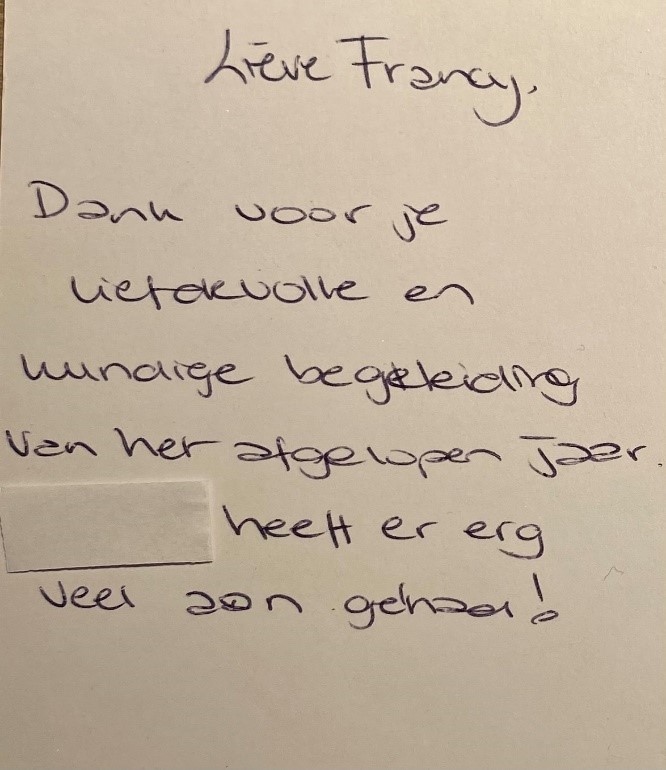 Lieve Francy,
Dank voor je
liefdevolle en
kundige begeleiding
van het afgelopen jaar.
heeft er erg
veel aan gehad!